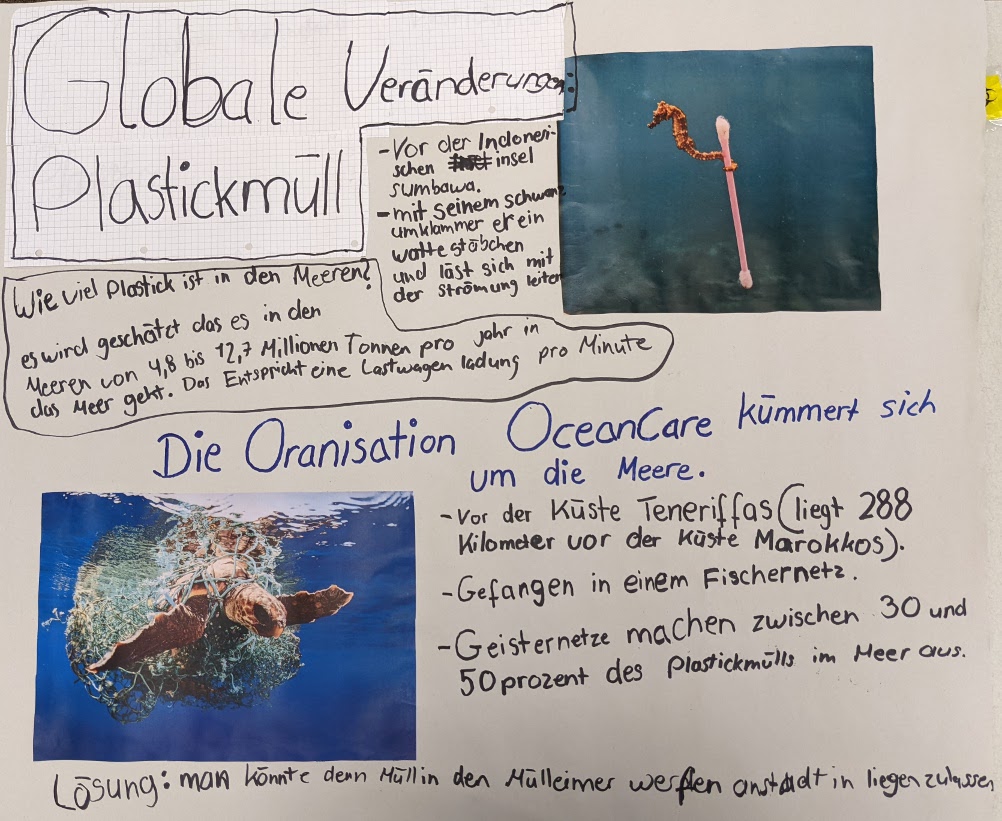 Globale Veränderungen:
Plastickmüll
-Vor der Indonesi-
schen insel
sumbawa.
-mit seinem schwanz
umklammer er ein
watte stäbchen
und läst sich mit
der Strömung leiten
Wie viel Plastick ist in den Meeren?
es wird geschätzt das es in den
Meeren von 4,8 bis 12,7 Millionen Tonnen pro jahr in
das Meer geht. Das Entspricht eine Lastwagen ladung pro Minute
Die Oranisation OceanCare kümmert sich
um die Meere.
-Vor der Küste Teneriffas (liegt 288
Kilometer vor der Küste Marokkos).
-Gefangen in einem Fischernetz.
-Geisternetze machen zwischen 30 und
50 prozent des Plastickmülls im Meer aus.
Lösung: man könnte denn Müll in den Mülleimer werfen anstadt in liegen zulassen